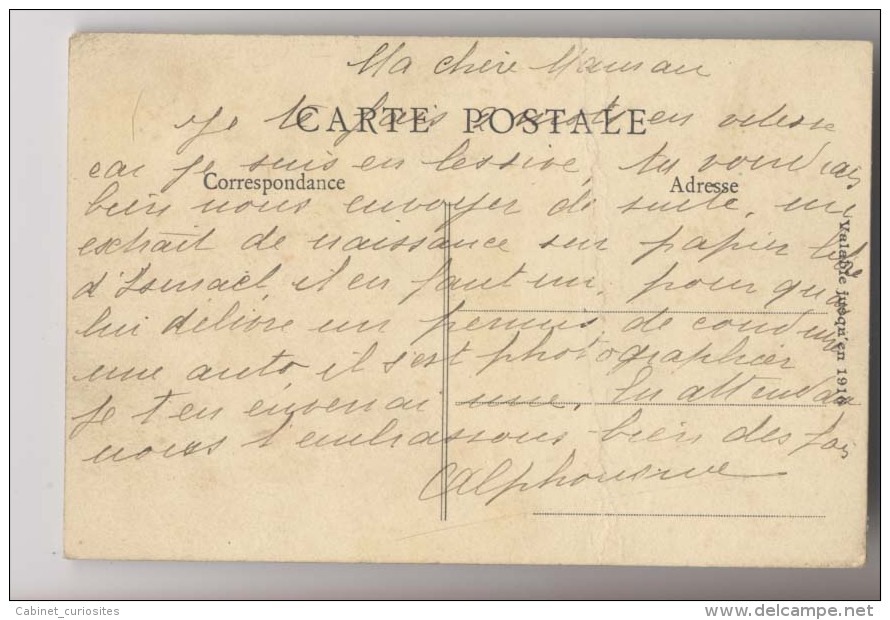 Ma chère Maman
CARTE POSTALE
Je te fais 2 mots en vitesse
car je suis en lessive, tu voudrais
Correspondance
Adresse
bien nous envoyer de suite, un
extrait de naissance sur papier libre
d'Ismaël, il en faut un, pour qu'on
lui délivre un permis de conduire
une auto il s'est photographier
je t'en enverrai une. En attendant
nous t'embrassons bien des fois
Alphonsine
Valable jusqu'en 191
Cabinet_curiosites
www.delcampe.net